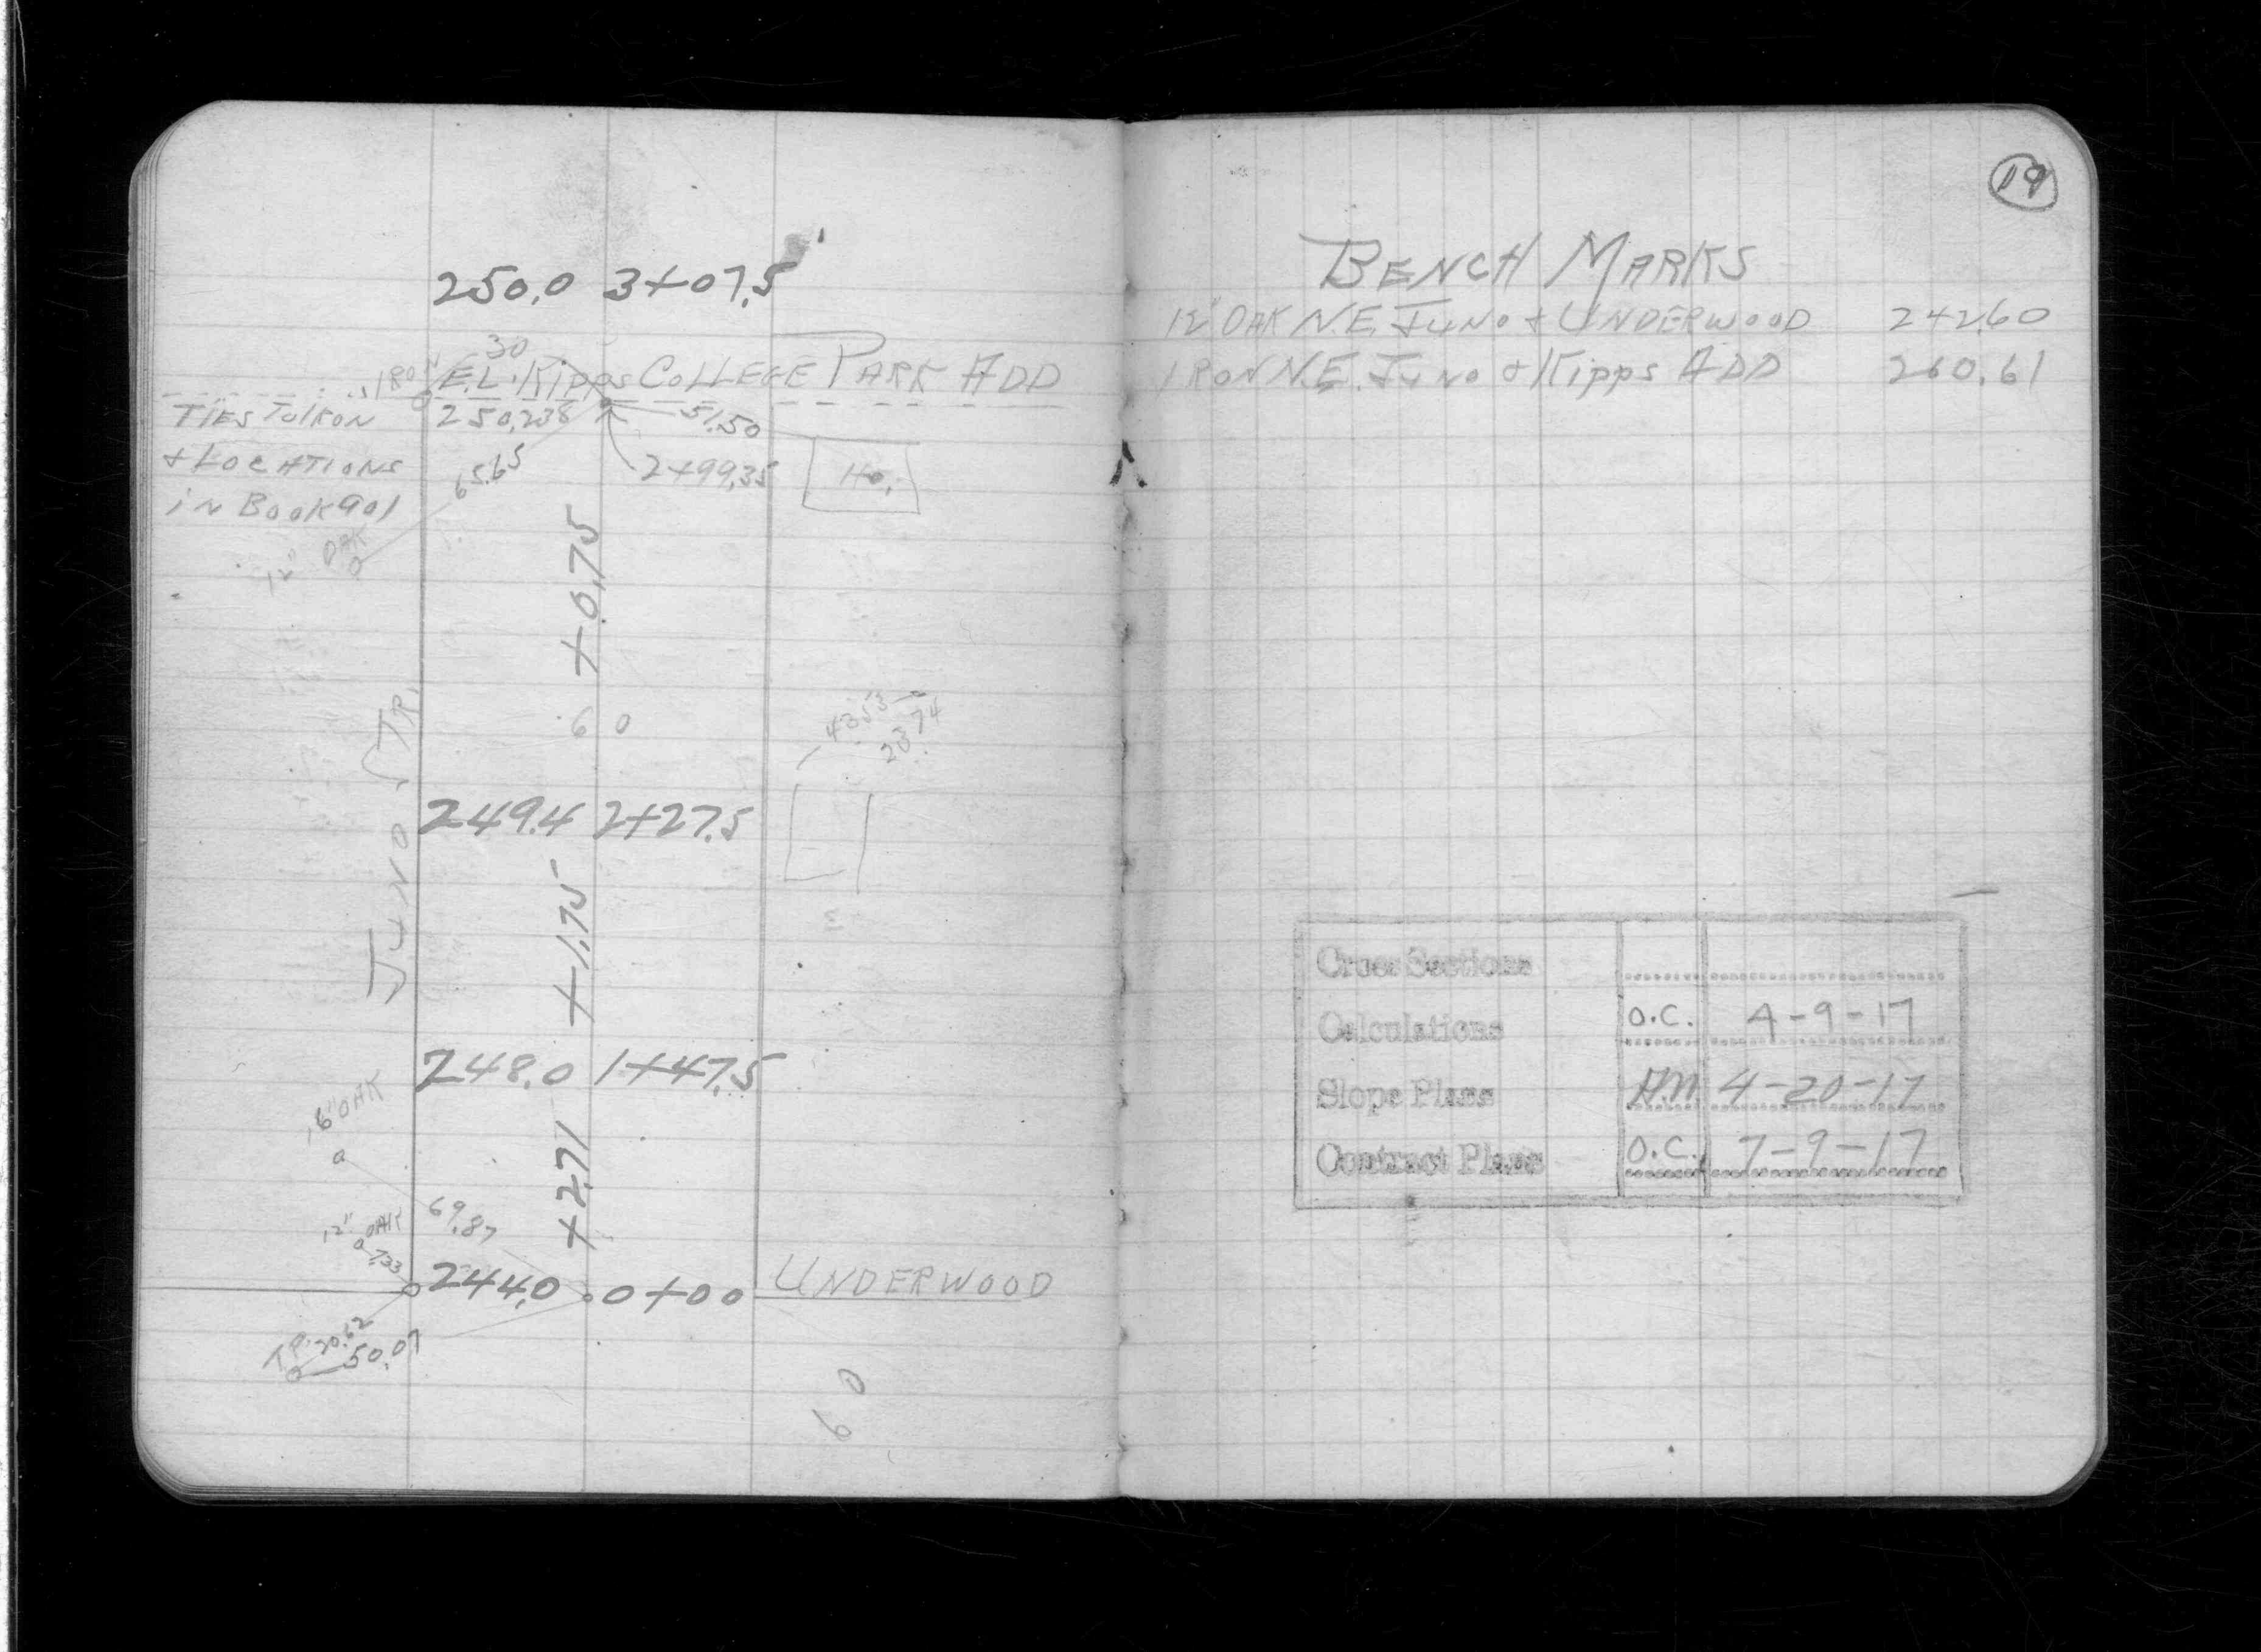 250.0 3+07.5
30
IRON E.L. Kipps COLLEGE PARK ADD
TIES TO IRON 250.238 51.50
+ LOCATIONS 65.65 2+99.35 Ho.
IN BOOK 901
12" OAK
+0.75
60
43.53
23.74
JUNO STR.
249.4 2+27.5
+1.75
248.0 1+47.5
6" OAK
+2.71
69.87
12" OAK
7.33
244.0 0+00 UNDERWOOD
T.P. 20.62
50.07
60
19
BENCH MARKS
12" OAK N.E. JUNO + UNDERWOOD 242.60
IRON N.E. JUNO + Kipps ADD 260.61
Cross Sections
Calculations O.C. 4-9-17
Slope Plans H.M. 4-20-17
Contract Plans O.C. 7-9-17